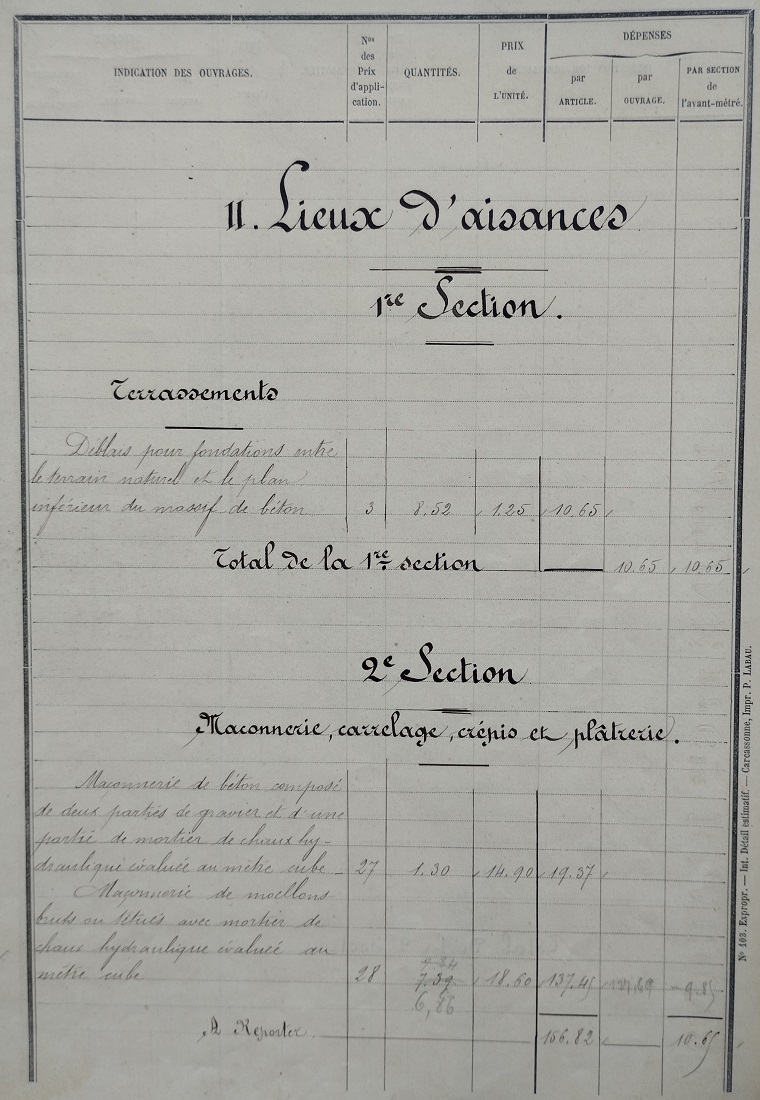 INDICATION DES OUVRAGES.
Nos des Prix d'appli-cation.
QUANTITÉS.
PRIX de L'UNITÉ.
DÉPENSES
par ARTICLE.
par OUVRAGE.
PAR SECTION de l'avant-métré.
II. Lieux d'aisances
1re Section.
Terrassements
Déblais pour fondations entre
le terrain naturel et le plan
inférieur du massif de béton 3 8.52 1.25 10.65
Total de la 1re section 10.65 10.65
2e Section
Maconnerie, carrelage, crépis et plâtrerie.
Maçonnerie de béton composé
de deux parties de gravier et d'une
partie de mortier de chaux hy-
draulique évaluée au mètre cube 27 1.30 14.90 19.37
Maçonnerie de moellons
bruts ou têtués avec mortier de
chaux hydraulique évaluée au
7.34
mètre cube 28 7.39 18.60 137.45 127.69 9.85
6,86
A Reporter 156.82 10.65
N° 103. Expropr. — Int. Détail estimatif. — Carcassonne, Impr. P. LABAU.